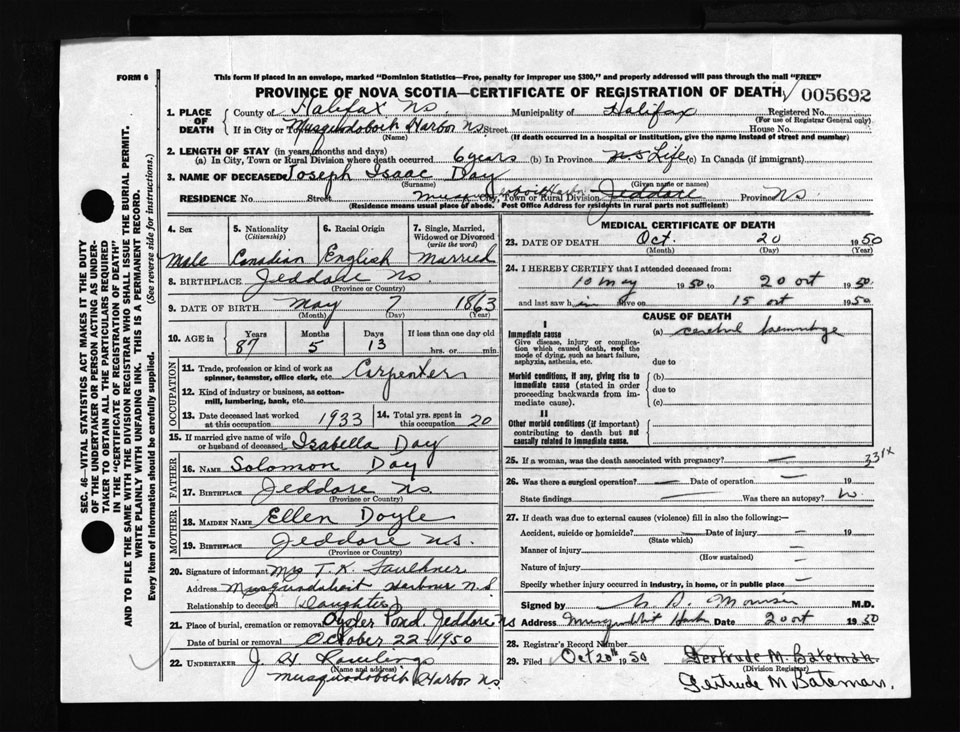 FORM 6
This form if placed in an envelope, marked "Dominion Statistics—Free, penalty for improper use $300," and properly addressed will pass through the mail "FREE"
PROVINCE OF NOVA SCOTIA—CERTIFICATE OF REGISTRATION OF DEATH
005692
1. PLACE OF DEATH
County of Halifax NS Municipality of Halifax Registered No.
(For use of Registrar General only)
If in City or Town Musquodoboit Harbor NS Street House No.
(Name) (If death occurred in a hospital or institution, give the name instead of street and number)
2. LENGTH OF STAY (in years, months and days)
(a) In City, Town or Rural Division where death occurred 6 years (b) In Province Life (c) In Canada (if immigrant)
3. NAME OF DECEASED Joseph Isaac Day
(Surname) (Given name or names)
RESIDENCE No. Street City, Town or Rural Division Jeddore Province NS
(Residence means usual place of abode. Post Office Address for residents in rural parts not sufficient)
4. Sex Male
5. Nationality (Citizenship) Canadian
6. Racial Origin English
7. Single, Married, Widowed or Divorced (write the word) Married
8. BIRTHPLACE Jeddore NS
(Province or Country)
9. DATE OF BIRTH May 7 1863
(Month) (Day) (Year)
10. AGE in Years Months Days If less than one day old
87 5 13 hrs. or min.
OCCUPATION
11. Trade, profession or kind of work as spinner, teamster, office clerk, etc. Carpenter
12. Kind of industry or business, as cotton-mill, lumbering, bank, etc.
13. Date deceased last worked at this occupation 1933
14. Total yrs. spent in this occupation 20
15. If married give name of wife or husband of deceased Isabella Day
FATHER
16. NAME Solomon Day
17. BIRTHPLACE Jeddore NS.
(Province or Country)
MOTHER
18. MAIDEN NAME Ellen Doyle
19. BIRTHPLACE Jeddore N.S.
(Province or Country)
20. Signature of informant Mrs T. K. Faulkner
Address Musquodoboit Harbour N.S
Relationship to deceased (Daughter)
21. Place of burial, cremation or removal Oyster Pond, Jeddore NS
Date of burial or removal October 22 1950
22. UNDERTAKER J. H. Rowlings
(Name and address)
Musquodoboit Harbor NS
MEDICAL CERTIFICATE OF DEATH
23. DATE OF DEATH Oct. 20 1950
(Month) (Day) (Year)
24. I HEREBY CERTIFY that I attended deceased from
10 May 1950 to 20 oct 1950
and last saw him alive on 15 oct 1950
CAUSE OF DEATH
I
Immediate cause
Give disease, injury or complication which caused death, not the mode of dying, such as heart failure, asphyxia, asthenia, etc.
(a) cerebral haemorrhage
due to
Morbid conditions, if any, giving rise to immediate cause (stated in order proceeding backwards from immediate cause).
(b)
due to
(c)
II
Other morbid conditions (if important) contributing to death but not causally related to immediate cause.
25. If a woman, was the death associated with pregnancy? — 331X
26. Was there a surgical operation? — Date of operation — 19
State findings — Was there an autopsy?
27. If death was due to external causes (violence) fill in also the following:—
Accident, suicide or homicide? — Date of injury — 19
(State which)
Manner of injury —
(How sustained)
Nature of injury —
Specify whether injury occurred in industry, in home, or in public place —
Signed by M.D.
Address Date 20 oct 1950
28. Registrar's Record Number
29. Filed Oct 20th 1950 Gertrude M. Bateman
(Division Registrar)
Gertrude M Bateman.
SEC. 46—VITAL STATISTICS ACT MAKES IT THE DUTY
OF THE UNDERTAKER OR PERSON ACTING AS UNDER-
TAKER TO OBTAIN ALL THE PARTICULARS REQUIRED
IN THE "CERTIFICATE OF REGISTRATION OF DEATH"
AND TO FILE THE SAME WITH THE DIVISION REGISTRAR WHO SHALL ISSUE THE BURIAL PERMIT.
WRITE PLAINLY WITH UNFADING INK. THIS IS A PERMANENT RECORD.
Every item of information should be carefully supplied. (See reverse side for instructions.)